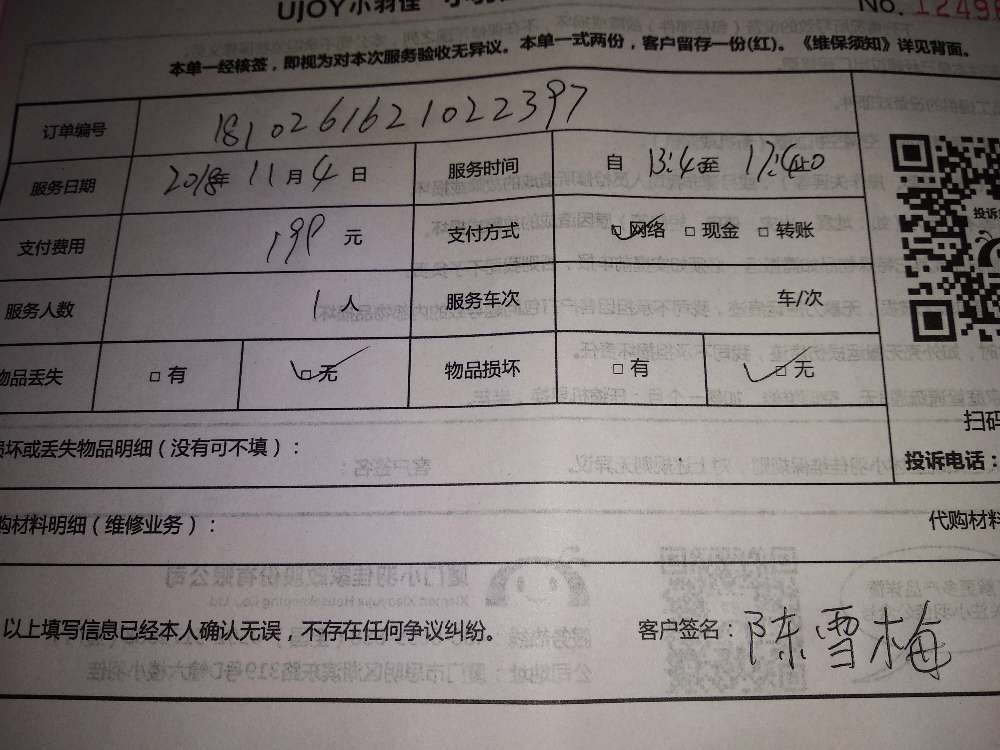 UJOY小羽佳
No. 12498
本单一经核签，即视为对本次服务验收无异议。本单一式两份，客户留存一份(红)。《维保须知》详见背面。
订单编号 1810261621022397
服务日期 2018年 11 月 4 日 服务时间 自 13:4至 17:40止
支付费用 199 元 支付方式 □网络 □现金 □转账
服务人数 1 人 服务车次 车/次
物品丢失 □有 □无 物品损坏 □有 □无
损坏或丢失物品明细（没有可不填）：
扫码
投诉电话：
购材料明细（维修业务）：
代购材料
以上填写信息已经本人确认无误，不存在任何争议纠纷。 客户签名：陈雪梅